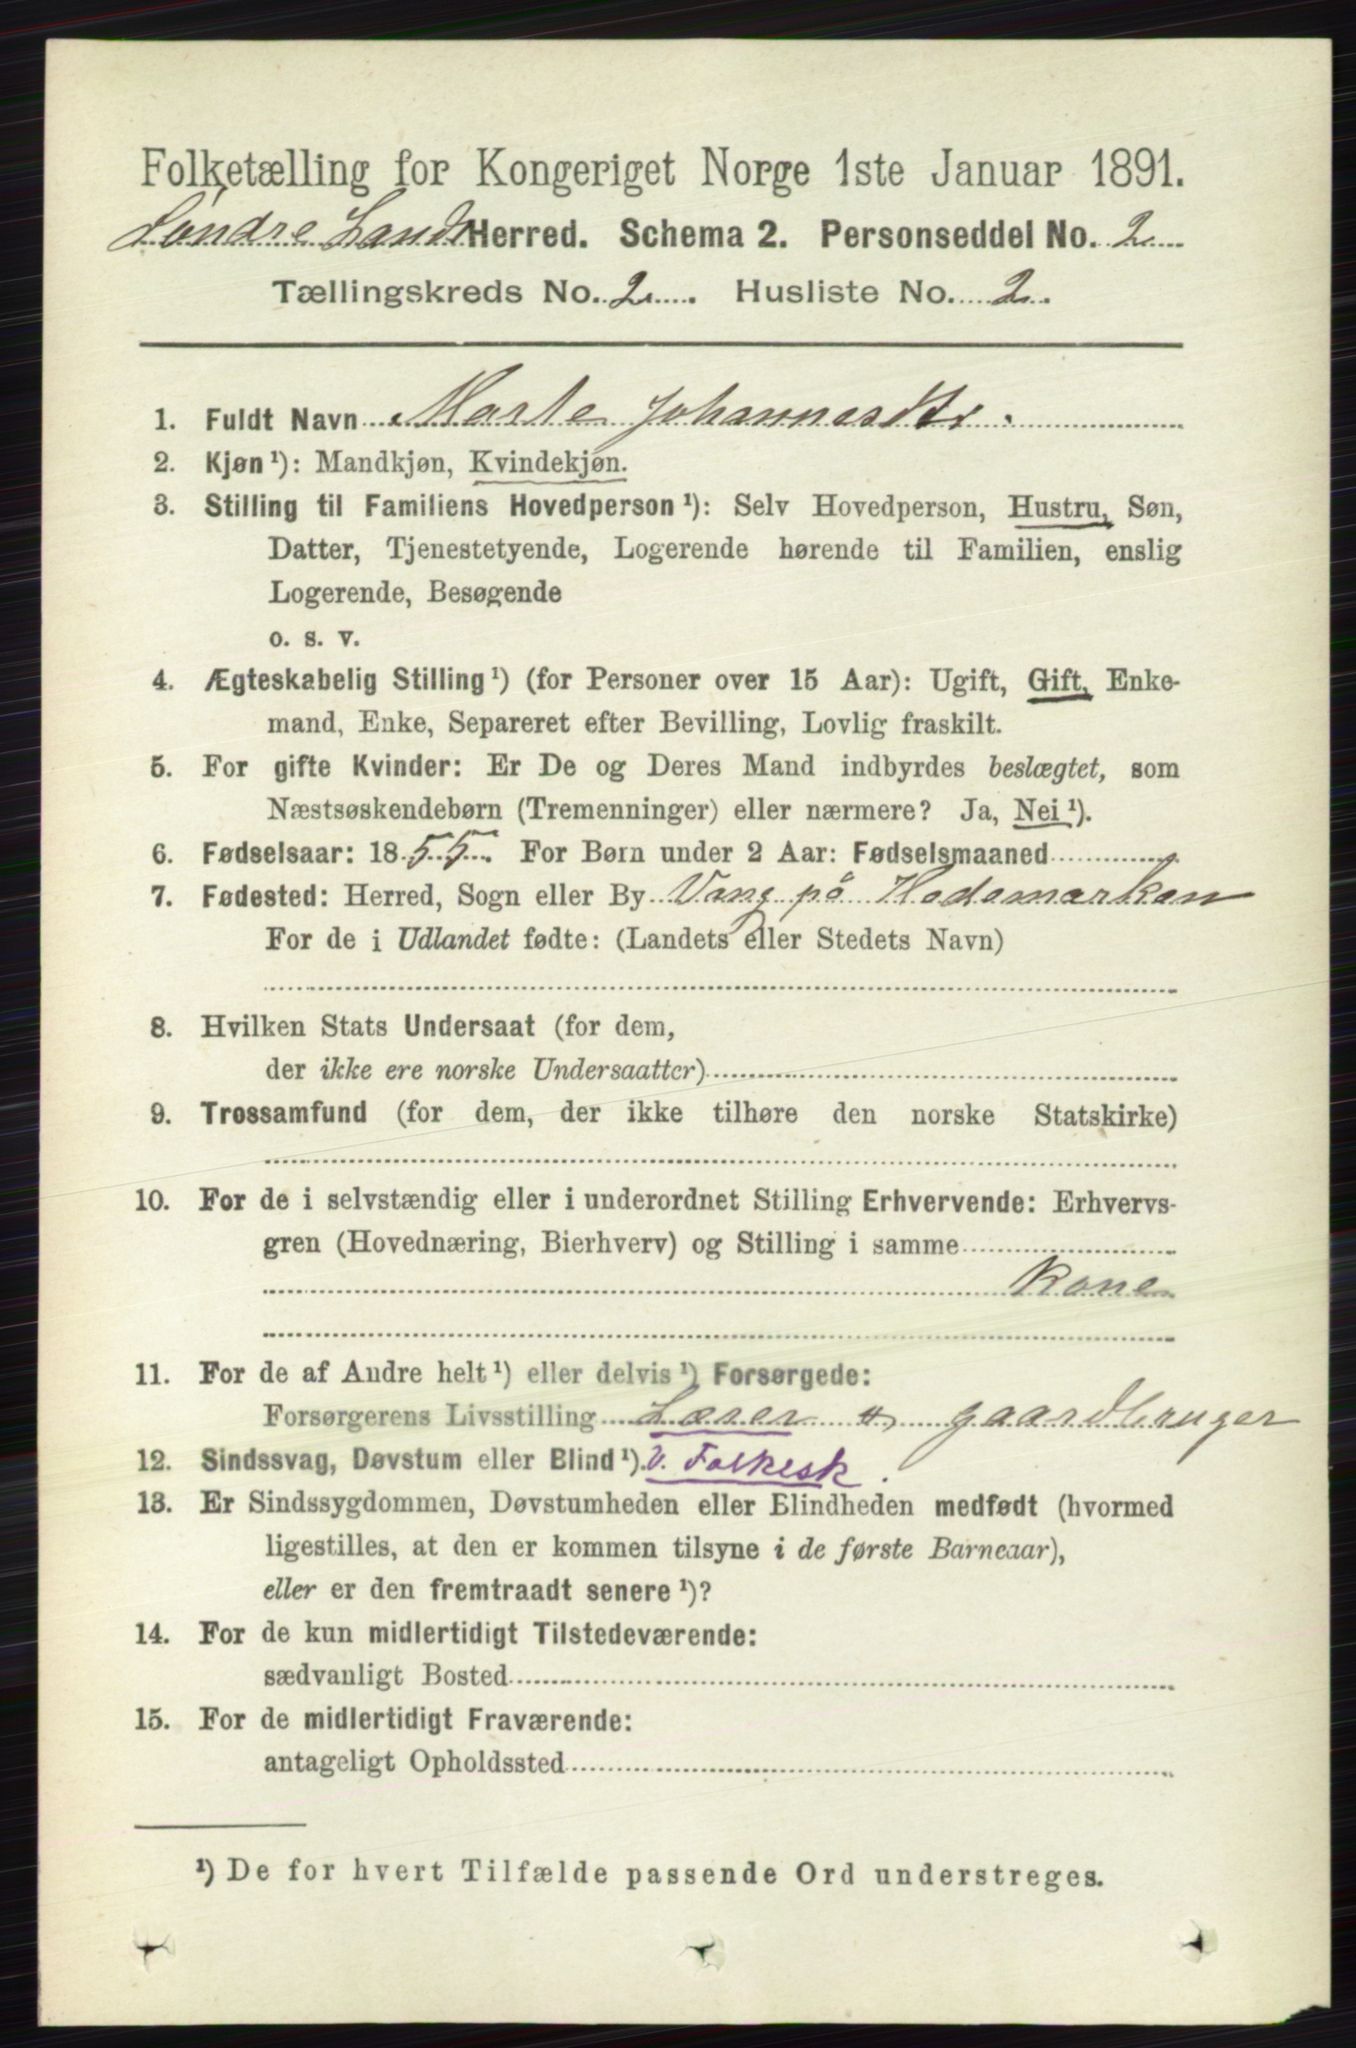 Folketælling for Kongeriget Norge 1ste Januar 1891.
Søndre Lands Herred. Schema 2. Personseddel No. 2
Tællingskreds No. 2. Husliste No. 2.
1. Fuldt Navn Marte Johannesdtr.
2. Kjøn ¹): Mandkjøn, Kvindekjøn.
3. Stilling til Familiens Hovedperson ¹): Selv Hovedperson, Hustru, Søn,
Datter, Tjenestetyende, Logerende hørende til Familien, enslig
Logerende, Besøgende
o. s. v.
4. Ægteskabelig Stilling ¹) (for Personer over 15 Aar): Ugift, Gift, Enke-
mand, Enke, Separeret efter Bevilling, Lovlig fraskilt.
5. For gifte Kvinder: Er De og Deres Mand indbyrdes beslægtet, som
Næstsøskendebørn (Tremenninger) eller nærmere? Ja, Nei ¹).
6. Fødselsaar: 1855. For Børn under 2 Aar: Fødselsmaaned
7. Fødested: Herred, Sogn eller By Vang på Hedemarken
For de i Udlandet fødte: (Landets eller Stedets Navn)
8. Hvilken Stats Undersaat (for dem,
der ikke ere norske Undersaatter)
9. Trossamfund (for dem, der ikke tilhøre den norske Statskirke)
10. For de i selvstændig eller i underordnet Stilling Erhvervende: Erhvervs-
gren (Hovednæring, Bierhverv) og Stilling i samme
Kone
11. For de af Andre helt ¹) eller delvis ¹) Forsørgede:
Forsørgerens Livsstilling Lærer & gaardbruger
12. Sindssvag, Døvstum eller Blind ¹). v. Folkesk.
13. Er Sindssygdommen, Døvstumheden eller Blindheden medfødt (hvormed
ligestilles, at den er kommen tilsyne i de første Barneaar),
eller er den fremtraadt senere ¹)?
14. For de kun midlertidigt Tilstedeværende:
sædvanligt Bosted
15. For de midlertidigt Fraværende:
antageligt Opholdssted
¹) De for hvert Tilfælde passende Ord understreges.